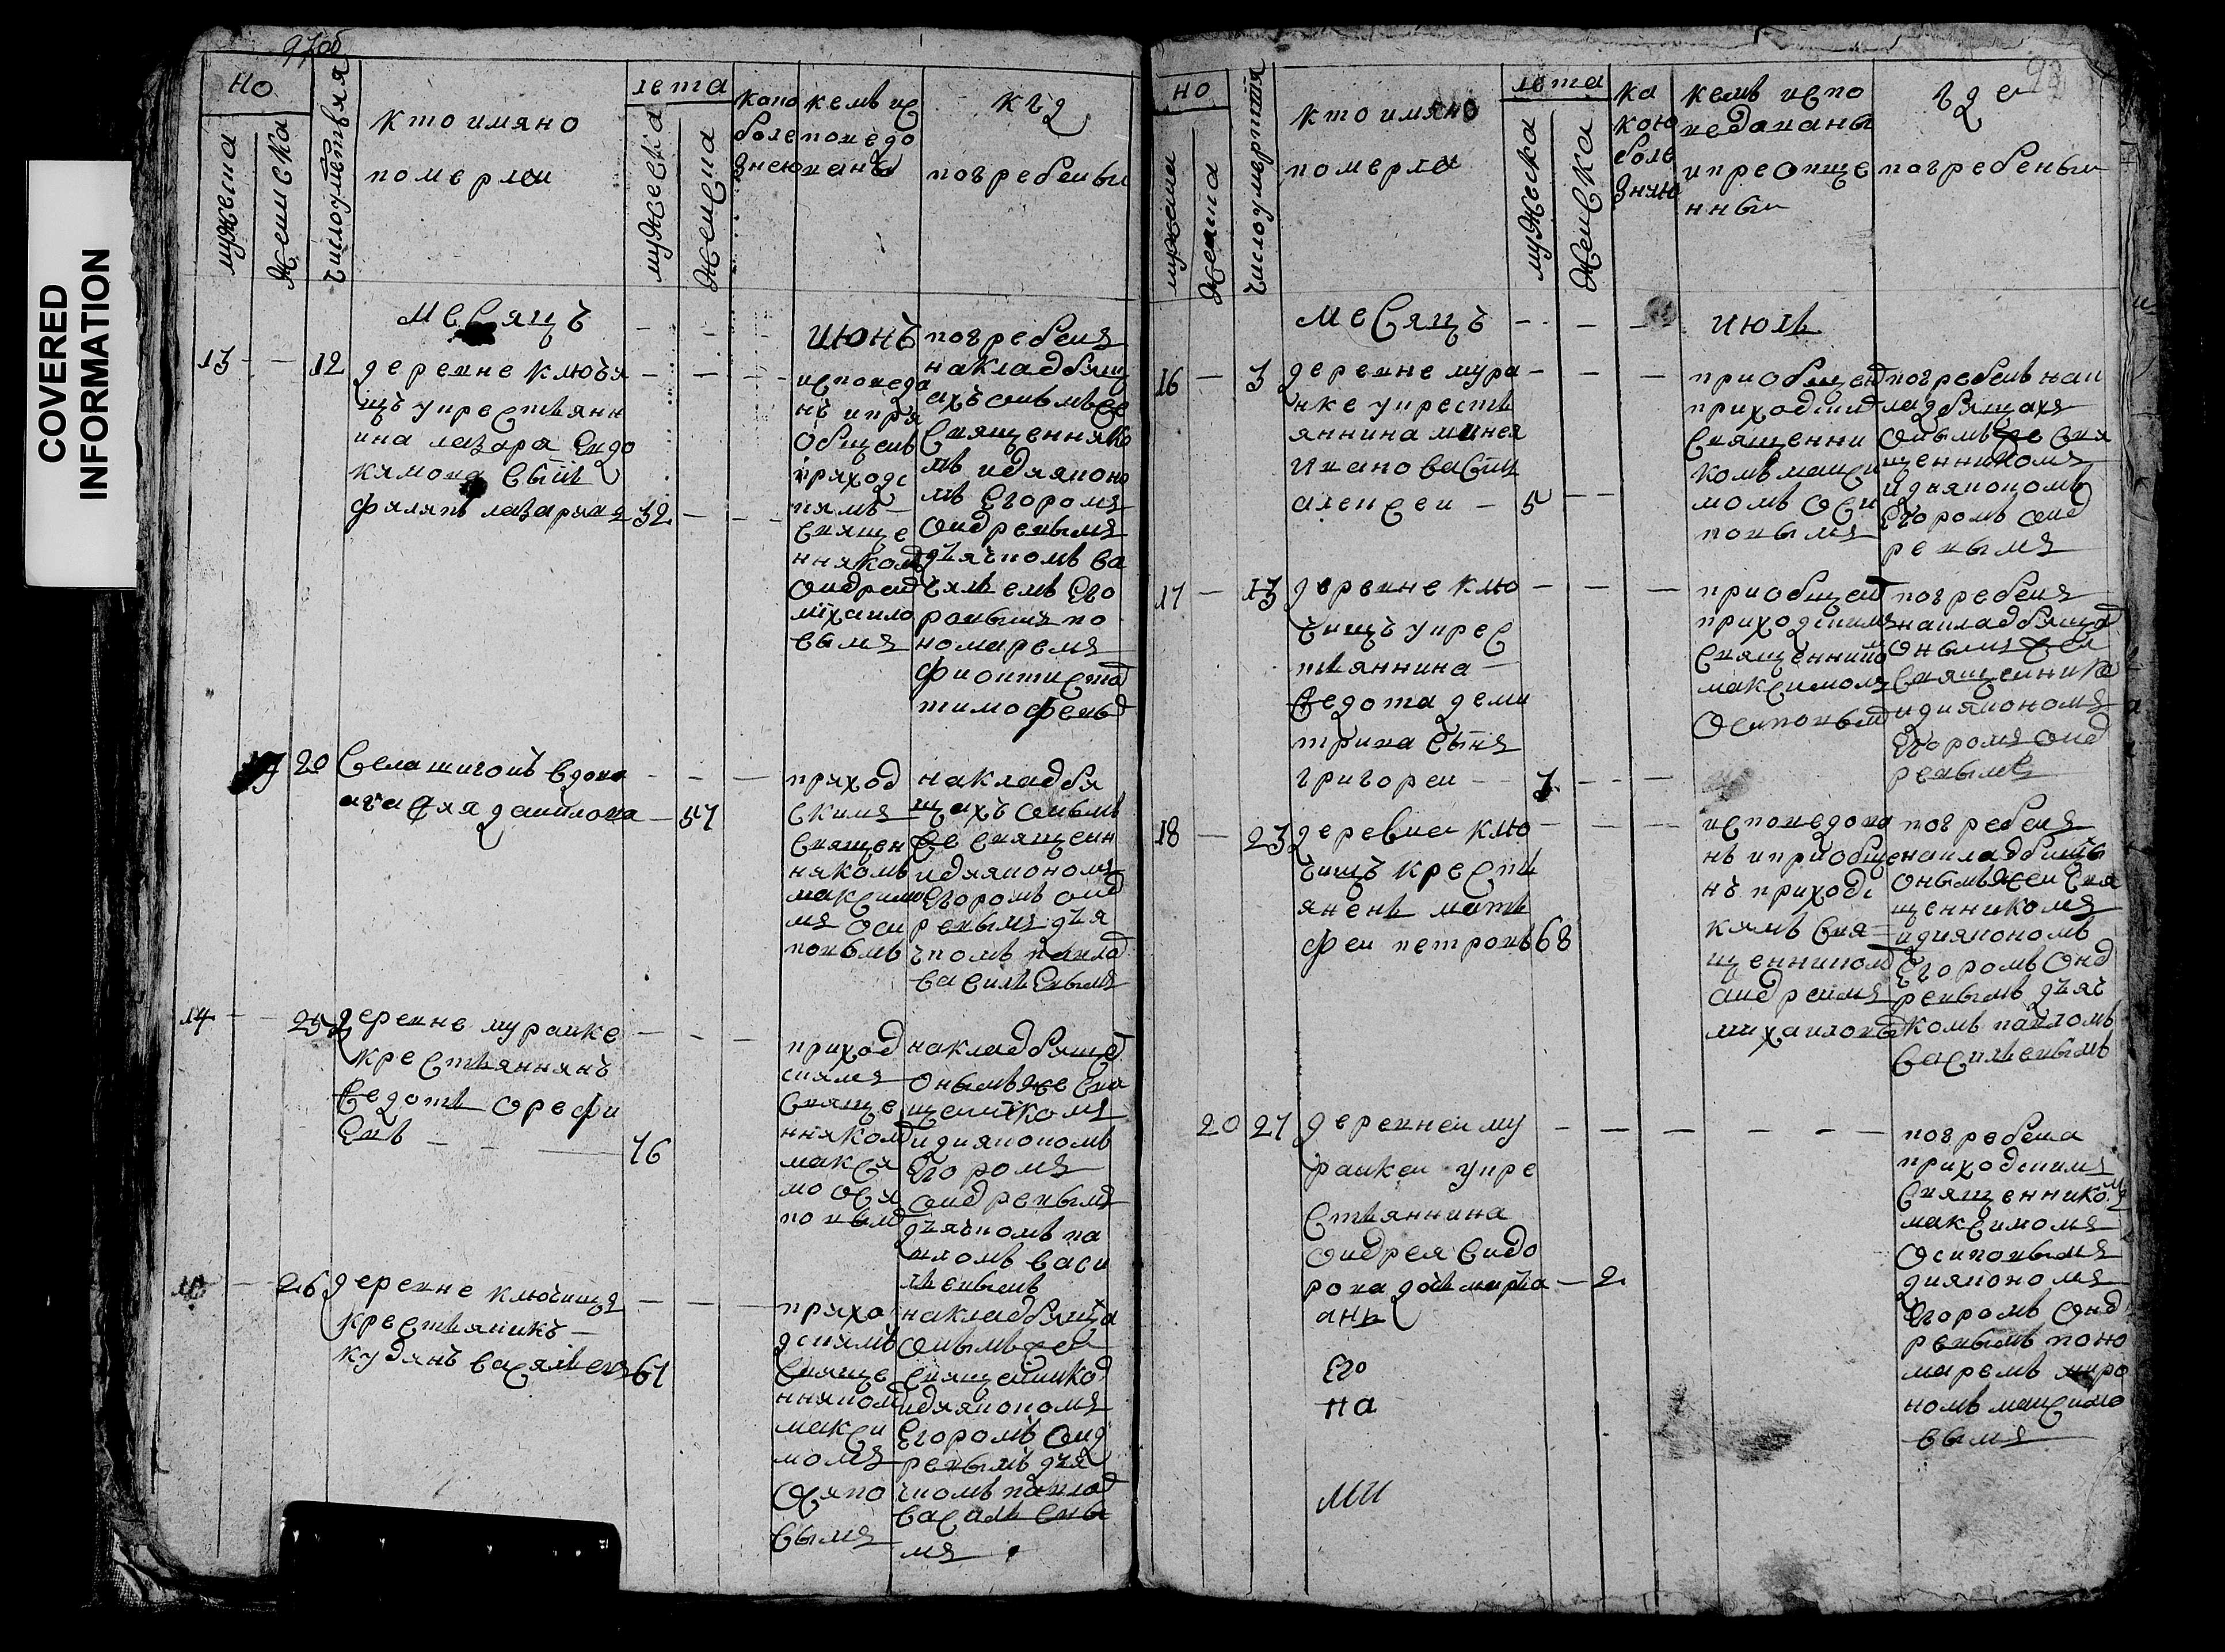 COVERED
INFORMATION
97об
но
мужеска
женска
число умертвия
кто имяно
померли
лета
мужеска
женска
како
боле
знею
кемъ ис
поведо
ванъ
кгд
погребены
месяцъ
июнъ
13 12
деревне ключи
щъ у крестьянн
ина лазаря Евдо
кимова сынъ
филипъ лазаревъ 32
исповеда
нъ и при
общенъ
приходс
кимъ
свяще
ннякомъ
андреем
михаило
вымъ
погребенъ
на кладбищ
ахъ онымъ же
священнико
мъ и дияконо
мъ Егоромъ
андреевымъ
дьячкомъ ва
силемъ Его
ровымъ по
номаремъ
тимофеевы
20
села шигонъ вдова
агафия данилова 57
приход
скимъ
священ
никомъ
максимо
мъ оси
повымъ
на кладби
щахъ онымъ
же священн
и дияконом
Егоромъ анд
реевымъ дья
чкомъ павлом
васильевымъ
14 25
деревне муранке
крестьяннинъ
федотъ орефи
евъ 76
приход
скимъ
свяще
нникомъ
макси
мо оси
повым
на кладбище
онымъ же свя
щенникомъ
и дияконом
Егоромъ
андреевымъ
дьячкомъ па
вломъ васи
льевымъ
26
деревне ключища
крестьянинъ
кудинъ василевъ 67
прихо
дскимъ
свяще
нником
макси
момъ
осипо
вымъ
на кладбища
онымъ же
священнико
и дияконом
Егоромъ анд
реевымъ дья
чкомъ павлом
василевы
мъ
92
но
мужеска
женска
число умертвия
кто имяно
померли
лета
мужеска
женска
ка
кою
боле
знию
кемъ испо
ведованы
и преопще
нны
где
погребены
месяцъ
июль
16 3
деревне мура
нке у кресть
яннина минея
Иванова сын
алексеи 5
приобщен
приходским
священни
комъ макси
момъ оси
повымъ
погребенъ на к
ладбищахъ
онымъ же свя
щенникомъ
и дияконом
Егоромъ анд
реевымъ
17 13
деревне клю
чищъ у крес
тьяннина
федота дими
трива сынъ
григореи 7
приобщен
приходским
священнико
максимомъ
осиповым
погребенъ
на кладбища
онымъ же
священнико
и дияконом
Егоромъ анд
реевымъ
18 23
деревнеи клю
чищъ кресть
янень мать
феи петровъ 68
исповедова
нъ и приобще
нъ приходс
кимъ свя
щенником
андреимъ
михаиловы
погребенъ
на кладбищъ
онымъ же свя
щенникомъ
и дияконом
Егоромъ анд
реевымъ дьяч
комъ павломъ
васильевымъ
20 27
деревнеи му
ранкеи у кре
стьяннина
андрея сидо
рова дочь марья 2
погребена
приходским
священником
максимомъ
осиповымъ
дияконом
Егоромъ анд
реевымъ поно
маремъ миро
номъ максимо
вымъ
Его
на
ми